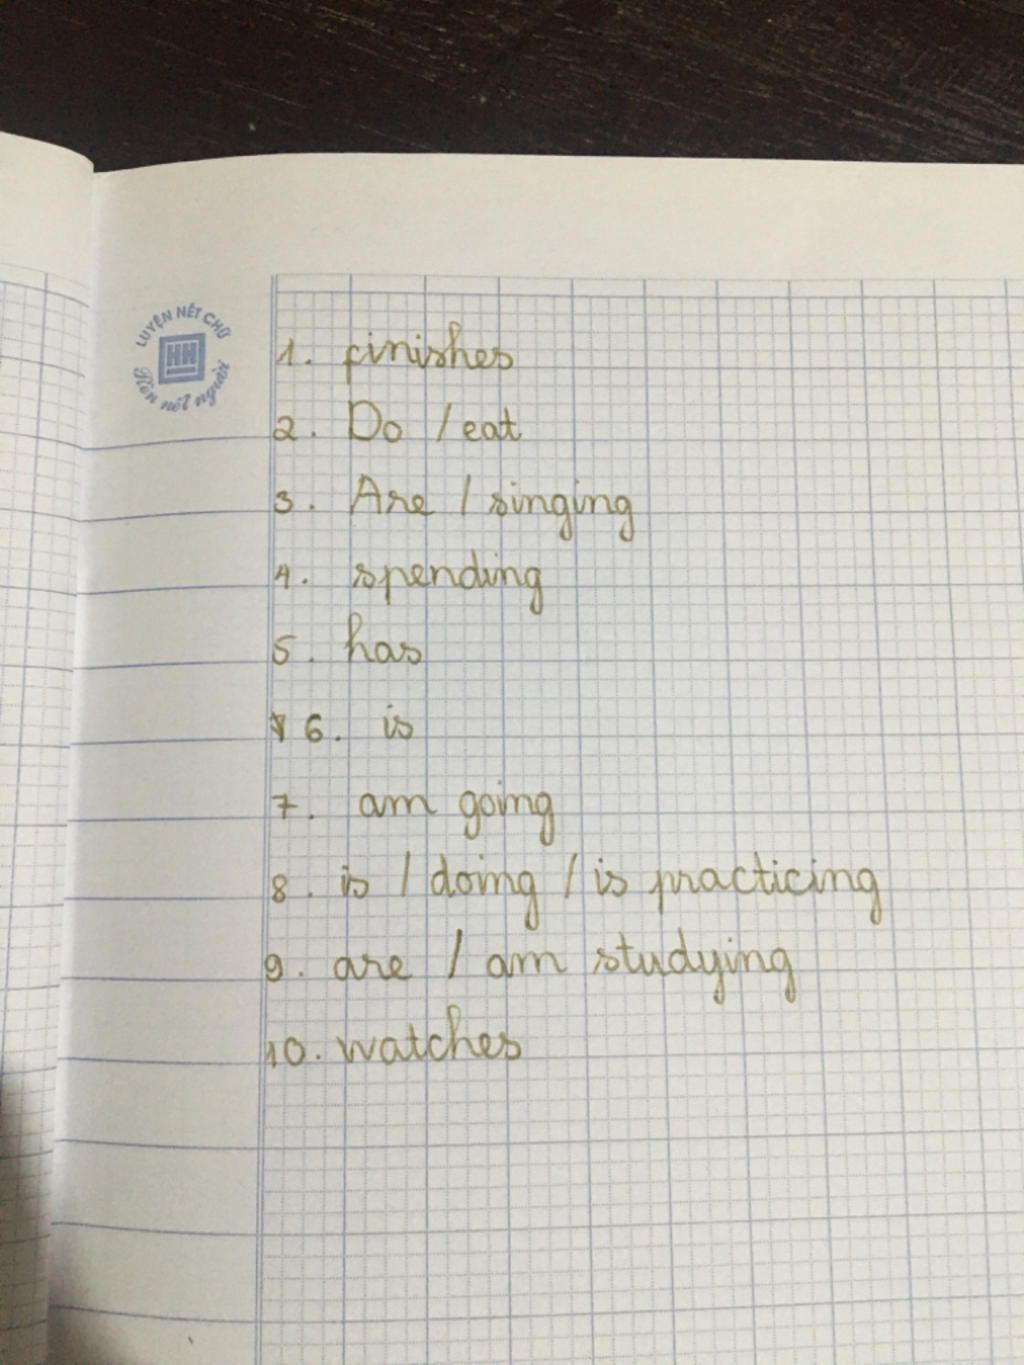 LUYỆN NÉT CHỮ
HH
Rèn nết người
1. finishes
2. Do / eat
3. Are / singing
4. spending
5. has
6. is
7. am going
8. is / doing / is practicing
9. are / am studying
10. watches